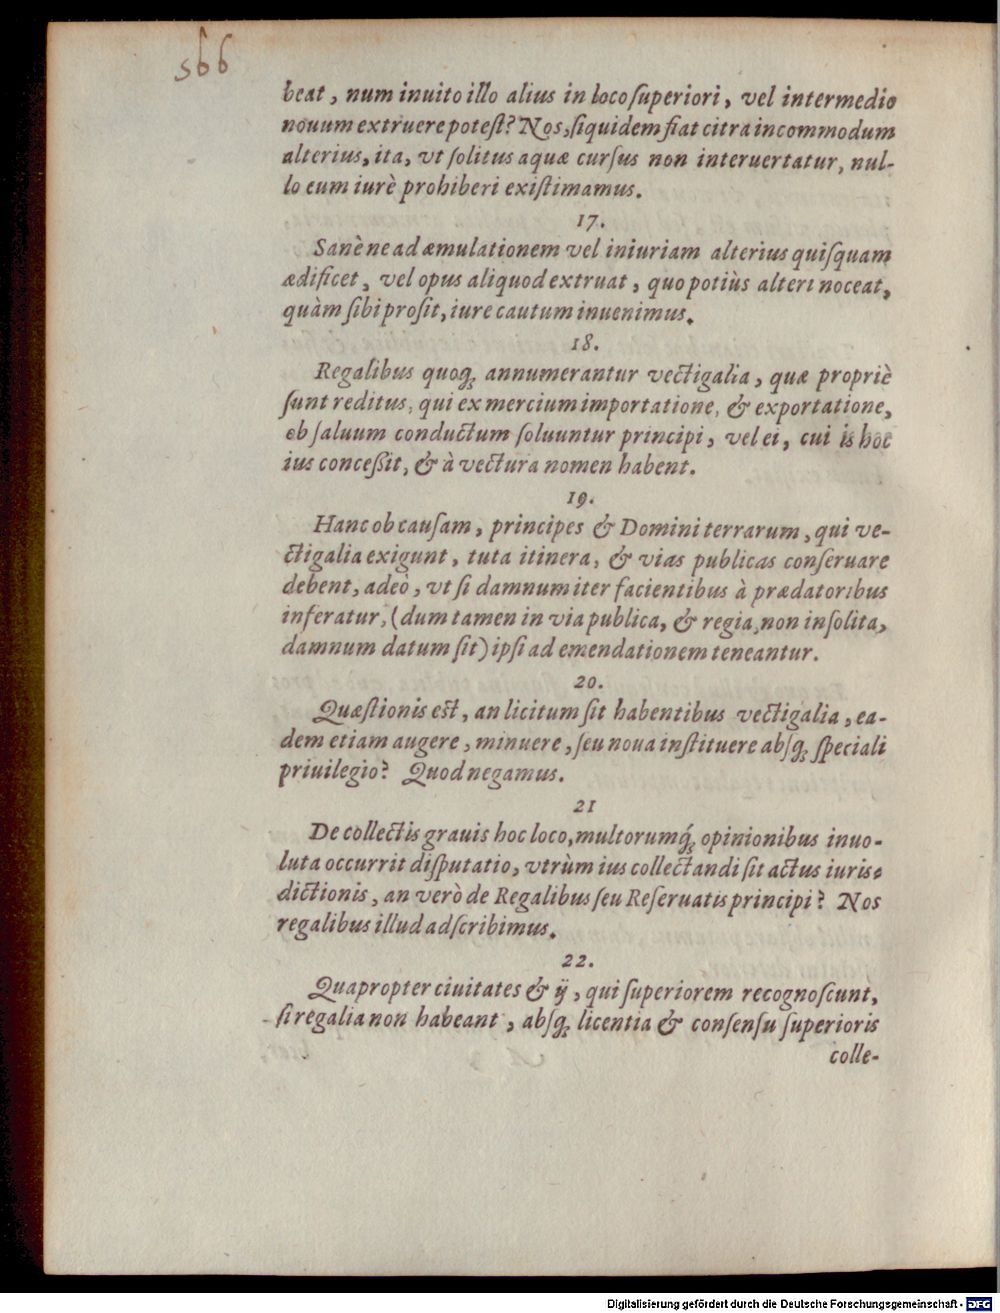 566
beat, num inuito illo alius in loco ſuperiori, vel intermedio
nouum extruere poteſt? Nos, ſiquidem fiat citra incommodum
alterius, ita, vt ſolitus aquæ curſus non interuertatur, nul-
lo eum iurè prohiberi exiſtimamus.
17.
Sanè ne ad æmulationem vel iniuriam alterius quiſquam
ædificet, vel opus aliquod extruat, quo potiùs alteri noceat,
quàm ſibi proſit, iure cautum inuenimus.
18.
Regalibus quoq; annumerantur vectigalia, quæ propriè
ſunt reditus, qui ex mercium importatione, & exportatione,
ob ſaluum conductum ſoluuntur principi, vel ei, cui is hoc
ius conceßit, & à vectura nomen habent.
19.
Hanc ob cauſam, principes & Domini terrarum, qui ve-
ctigalia exigunt, tuta itinera, & vias publicas conſeruare
debent, adeò, vt ſi damnum iter facientibus à prædatoribus
inferatur, (dum tamen in via publica, & regia, non inſolita,
damnum datum ſit) ipſi ad emendationem teneantur.
20.
Quæſtionis eſt, an licitum ſit habentibus vectigalia, ea-
dem etiam augere, minuere, ſeu noua inſtituere abſq; ſpeciali
priuilegio? Quod negamus.
21
De collectis grauis hoc loco, multorumq́; opinionibus inuo-
luta occurrit diſputatio, vtrùm ius collectandi ſit actus iuris-
dictionis, an verò de Regalibus ſeu Reſeruatis principi? Nos
regalibus illud adſcribimus.
22.
Quapropter ciuitates & ij, qui ſuperiorem recognoſcunt,
ſi regalia non habeant, abſq; licentia & conſenſu ſuperioris
colle-
Digitalisierung gefördert durch die Deutsche Forschungsgemeinschaft - DFG